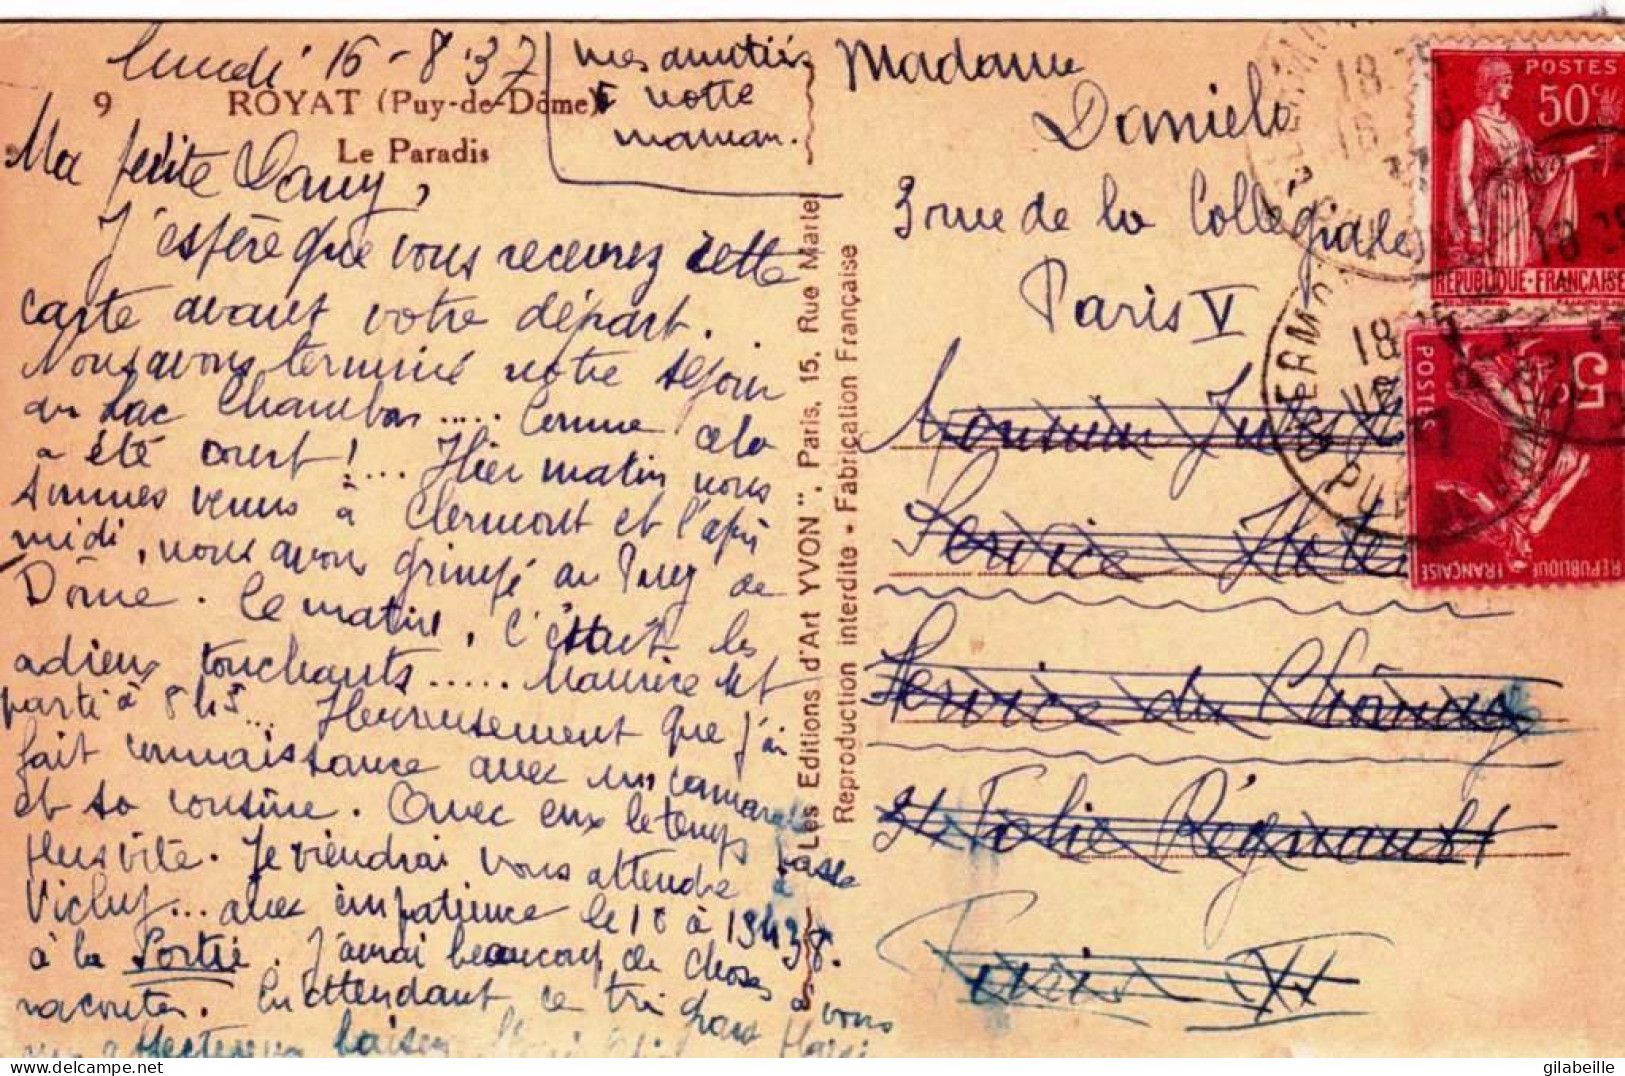 lundi 16-8-37
9 ROYAT (Puy-de-Dôme)
Le Paradis
mes amitiés
à votre
maman.
Ma petite Dany,
J'espère que vous recevrez cette
carte avant votre départ.
Nous avons terminé notre séjour
au Lac Chambon..... Comme cela
a été court!... Hier matin nous
sommes venus à Clermont et l'après
midi, nous avons grimpé au Puy de
Dôme. Ce matin, c'était les
adieux touchants..... Maurice est
parti à 8h5... Heureusement que j'ai
fait connaissance avec un camarade
et sa cousine. Avec eux le temps passe
plus vite. Je viendrai vous attendre à
Vichy... avec impatience le 18 à 13h38.
à la Sortie. J'aurai beaucoup de choses à vous
raconter. En attendant ce très grand plaisir
affectueux baisers
LES Editions d'Art YVON", Paris, 15, Rue Martel
Reproduction interdite - Fabrication Française
Madame
Daniela
3 rue de la Collégiale
Paris V
Monsieur Jules
Service
Service du Chômage
Folie Régnault
Paris XI
POSTES
50c
RÉPUBLIQUE-FRANÇAISE
POSTES
5c
REPUBLIQUE FRANÇAISE
CLERMONT
18
PUY
18
gilabeille